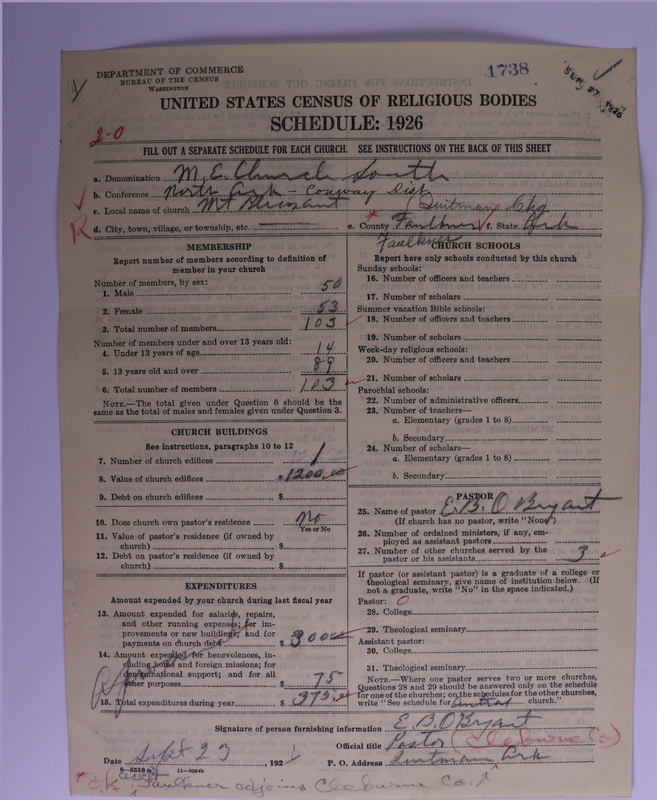 DEPARTMENT OF COMMERCE
BUREAU OF THE CENSUS
WASHINGTON
1738
SEP 27 1926
UNITED STATES CENSUS OF RELIGIOUS BODIES
SCHEDULE: 1926
2-0
FILL OUT A SEPARATE SCHEDULE FOR EACH CHURCH. SEE INSTRUCTIONS ON THE BACK OF THIS SHEET
a. Denomination M. E. Church South
b. Conference North Ark - Conway Dist
c. Local name of church Mt Pleasant (Quitman Chg
d. City, town, village, or township, etc.
e. County Faulkner f. State Ark
Faulkner
MEMBERSHIP
Report number of members according to definition of member in your church
Number of members, by sex:
1. Male 50
2. Female 53
3. Total number of members 103
Number of members under and over 13 years old:
4. Under 13 years of age 14
5. 13 years old and over 89
6. Total number of members 103
NOTE.—The total given under Question 6 should be the same as the total of males and females given under Question 3.
CHURCH BUILDINGS
See instructions, paragraphs 10 to 12
7. Number of church edifices 1
8. Value of church edifices $1200.00
9. Debt on church edifices $
10. Does church own pastor's residence No
Yes or No
11. Value of pastor's residence (if owned by church) $
12. Debt on pastor's residence (if owned by church) $
EXPENDITURES
Amount expended by your church during last fiscal year
13. Amount expended for salaries, repairs, and other running expenses; for improvements or new buildings; and for payments on church debt $ 300
14. Amount expended for benevolences, including home and foreign missions; for denominational support; and for all other purposes $ 75
15. Total expenditures during year $ 375
CHURCH SCHOOLS
Report here only schools conducted by this church
Sunday schools:
16. Number of officers and teachers
17. Number of scholars
Summer vacation Bible schools:
18. Number of officers and teachers
19. Number of scholars
Week-day religious schools:
20. Number of officers and teachers
21. Number of scholars
Parochial schools:
22. Number of administrative officers
23. Number of teachers—
a. Elementary (grades 1 to 8)
b. Secondary
24. Number of scholars—
a. Elementary (grades 1 to 8)
b. Secondary
PASTOR
25. Name of pastor E. B. O Bryant
(If church has no pastor, write "None")
26. Number of ordained ministers, if any, employed as assistant pastors
27. Number of other churches served by the pastor or his assistants 3
If pastor (or assistant pastor) is a graduate of a college or theological seminary, give name of institution below. (If not a graduate, write "No" in the space indicated.)
Pastor: 0
28. College
29. Theological seminary
Assistant pastor:
30. College
31. Theological seminary
NOTE.—Where one pastor serves two or more churches, Questions 28 and 29 should be answered only on the schedule for one of the churches; on the schedules for the other churches, write "See schedule for Central church."
Signature of person furnishing information E. B. O Bryant
Official title Pastor (Cleburne Co)
Date Sept 23, 192
P. O. Address Quitman Ark
11—9054b
* O.K. Faulkner adjoins Cleburne Co.